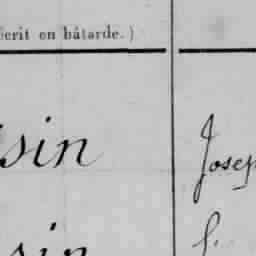 écrit en bâtarde.)
sin Josep
sin